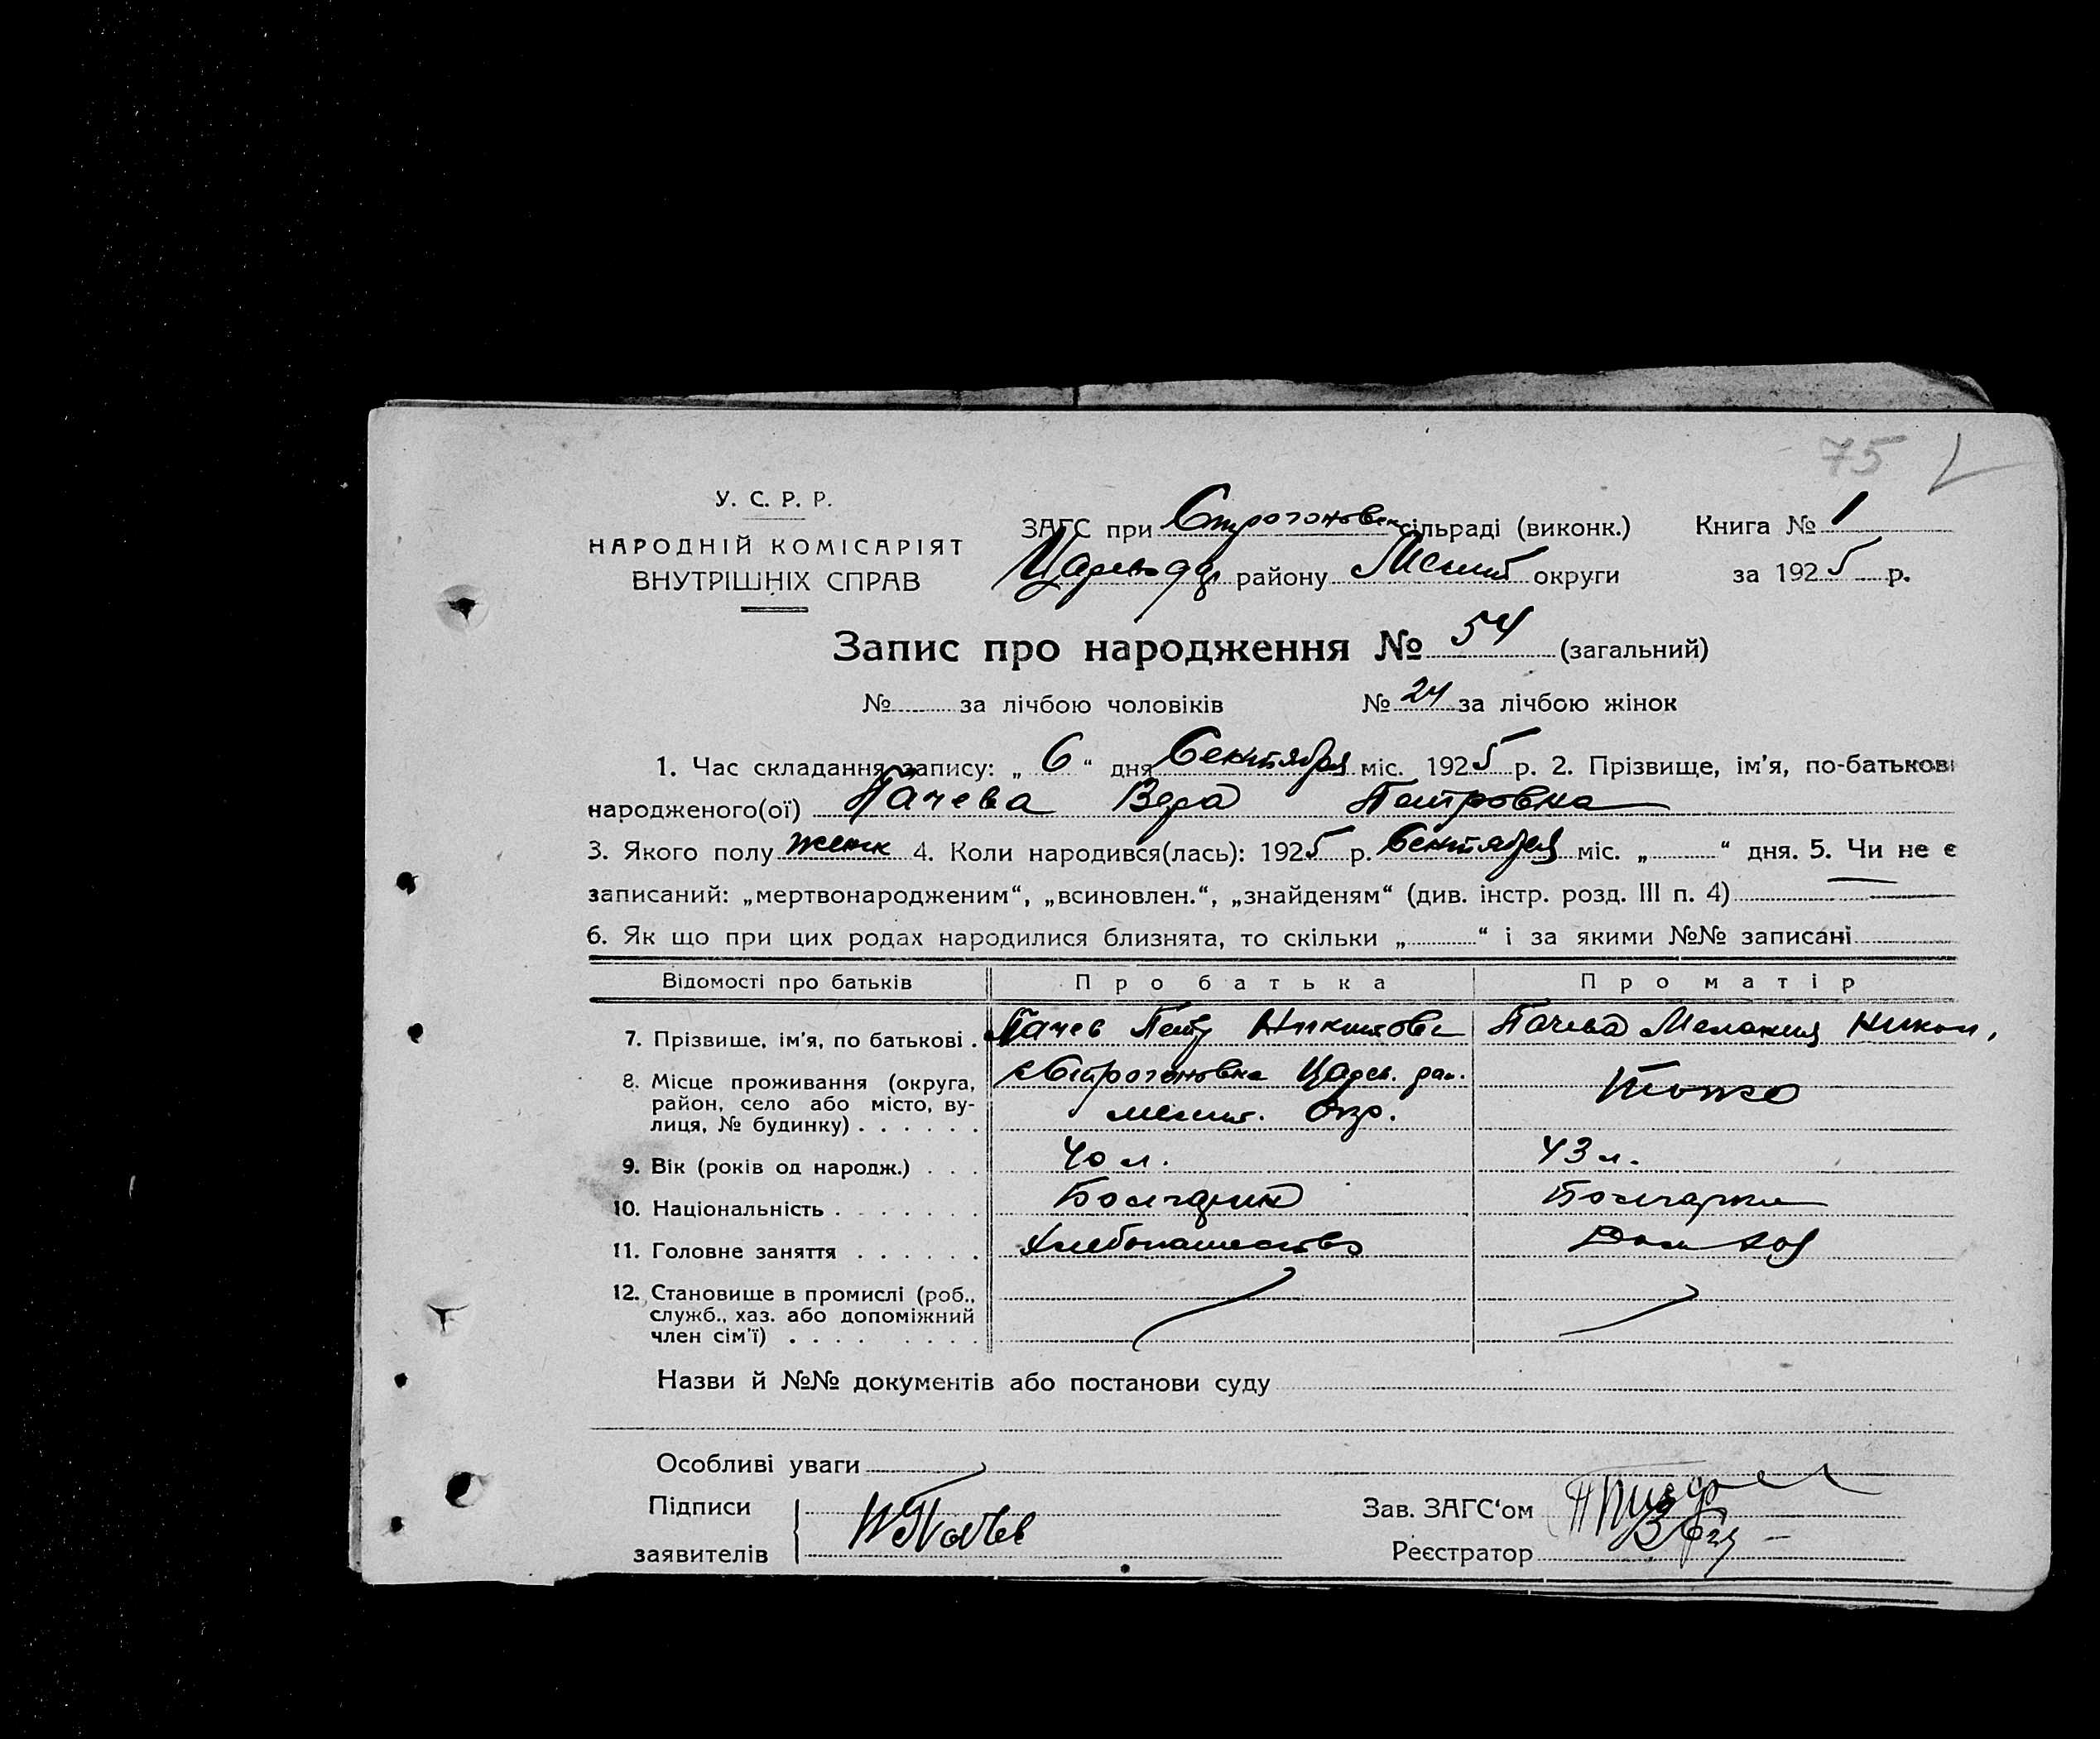 75
У. С. Р. Р.
НАРОДНІЙ КОМІСАРІЯТ
ВНУТРІШНІХ СПРАВ
ЗАГС при Строгоновск сільраді (виконк.) Книга № 1
району округи за 1925 р.
Запис про народження № 54 (загальний)
№ за лічбою чоловіків № 24 за лічбою жінок
1. Час складання запису: „ 6 “ дня Сентября міс. 1925 р. 2. Прізвище, ім'я, по-батькові
народженого(ої) Пачева Вера Петровна
3. Якого полу женск 4. Коли народився(лась): 1925 р. Сентября міс. „ “ дня. 5. Чи не є
записаний: „мертвонародженим“, „всиновлен.“, „знайденям“ (див. інстр. розд. III п. 4)
6. Як що при цих родах народилися близнята, то скільки „ “ і за якими №№ записані
Відомості про батьків Про батька Про матір
7. Прізвище, ім'я, по батькові . Пачев Петр Пачева Мелания Никол.
8. Місце проживання (округа, район, село або місто, вулиця, № будинку) . . . . . . Строгоновка Царев. рай.
Мелит. Окр. Тоже
9. Вік (років од народж.) . . . 40 л. 43 л.
10. Національність . . . . . . . Болгарин Болгарка
11. Головне заняття . . . . . . Хлебопашество Дом хоз
12. Становище в промислі (роб.,
служб., хаз. або допоміжний
член сім'ї) . . . . . . . .
Назви й №№ документів або постанови суду
Особливі уваги
Підписи
заявителів П Пачев
Зав. ЗАГС'ом
Реєстратор